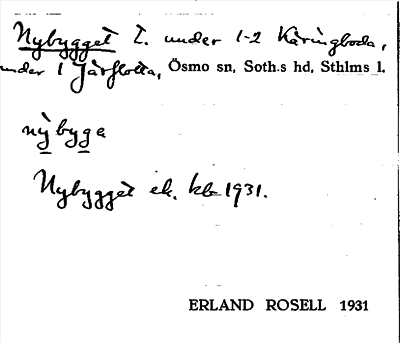 Nybygget t. under 1-2 Käringboda,
under 1 Järflotta, Ösmo sn, Soth.s hd, Sthlms l.
nỳbyga
Nybygget ek. kb 1931.
ERLAND ROSELL 1931